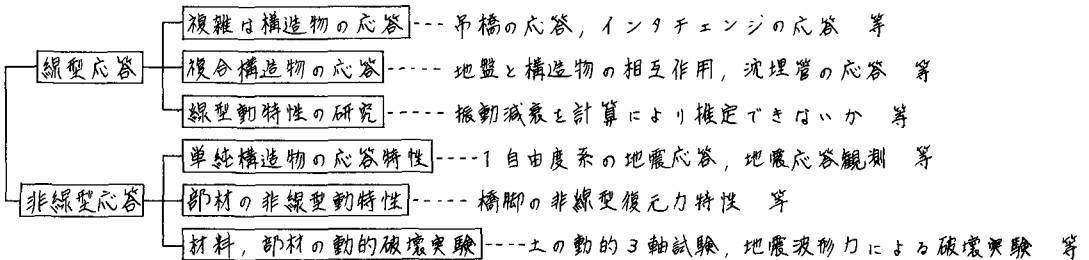 複雑は構造物の応答 ---- 吊橋の応答，インタチェンジの応答 等
線型応答 複合構造物の応答 ----- 地盤と構造物の相互作用，沈埋管の応答 等
線型動特性の研究 ----- 振動減衰を計算により推定できないか 等
単純構造物の応答特性 ---- 1自由度系の地震応答，地震応答観測 等
非線型応答 部材の非線型動特性 ----- 橋脚の非線型復元力特性 等
材料，部材の動的破壊実験 ---- 土の動的3軸試験，地震波形力による破壊実験 等